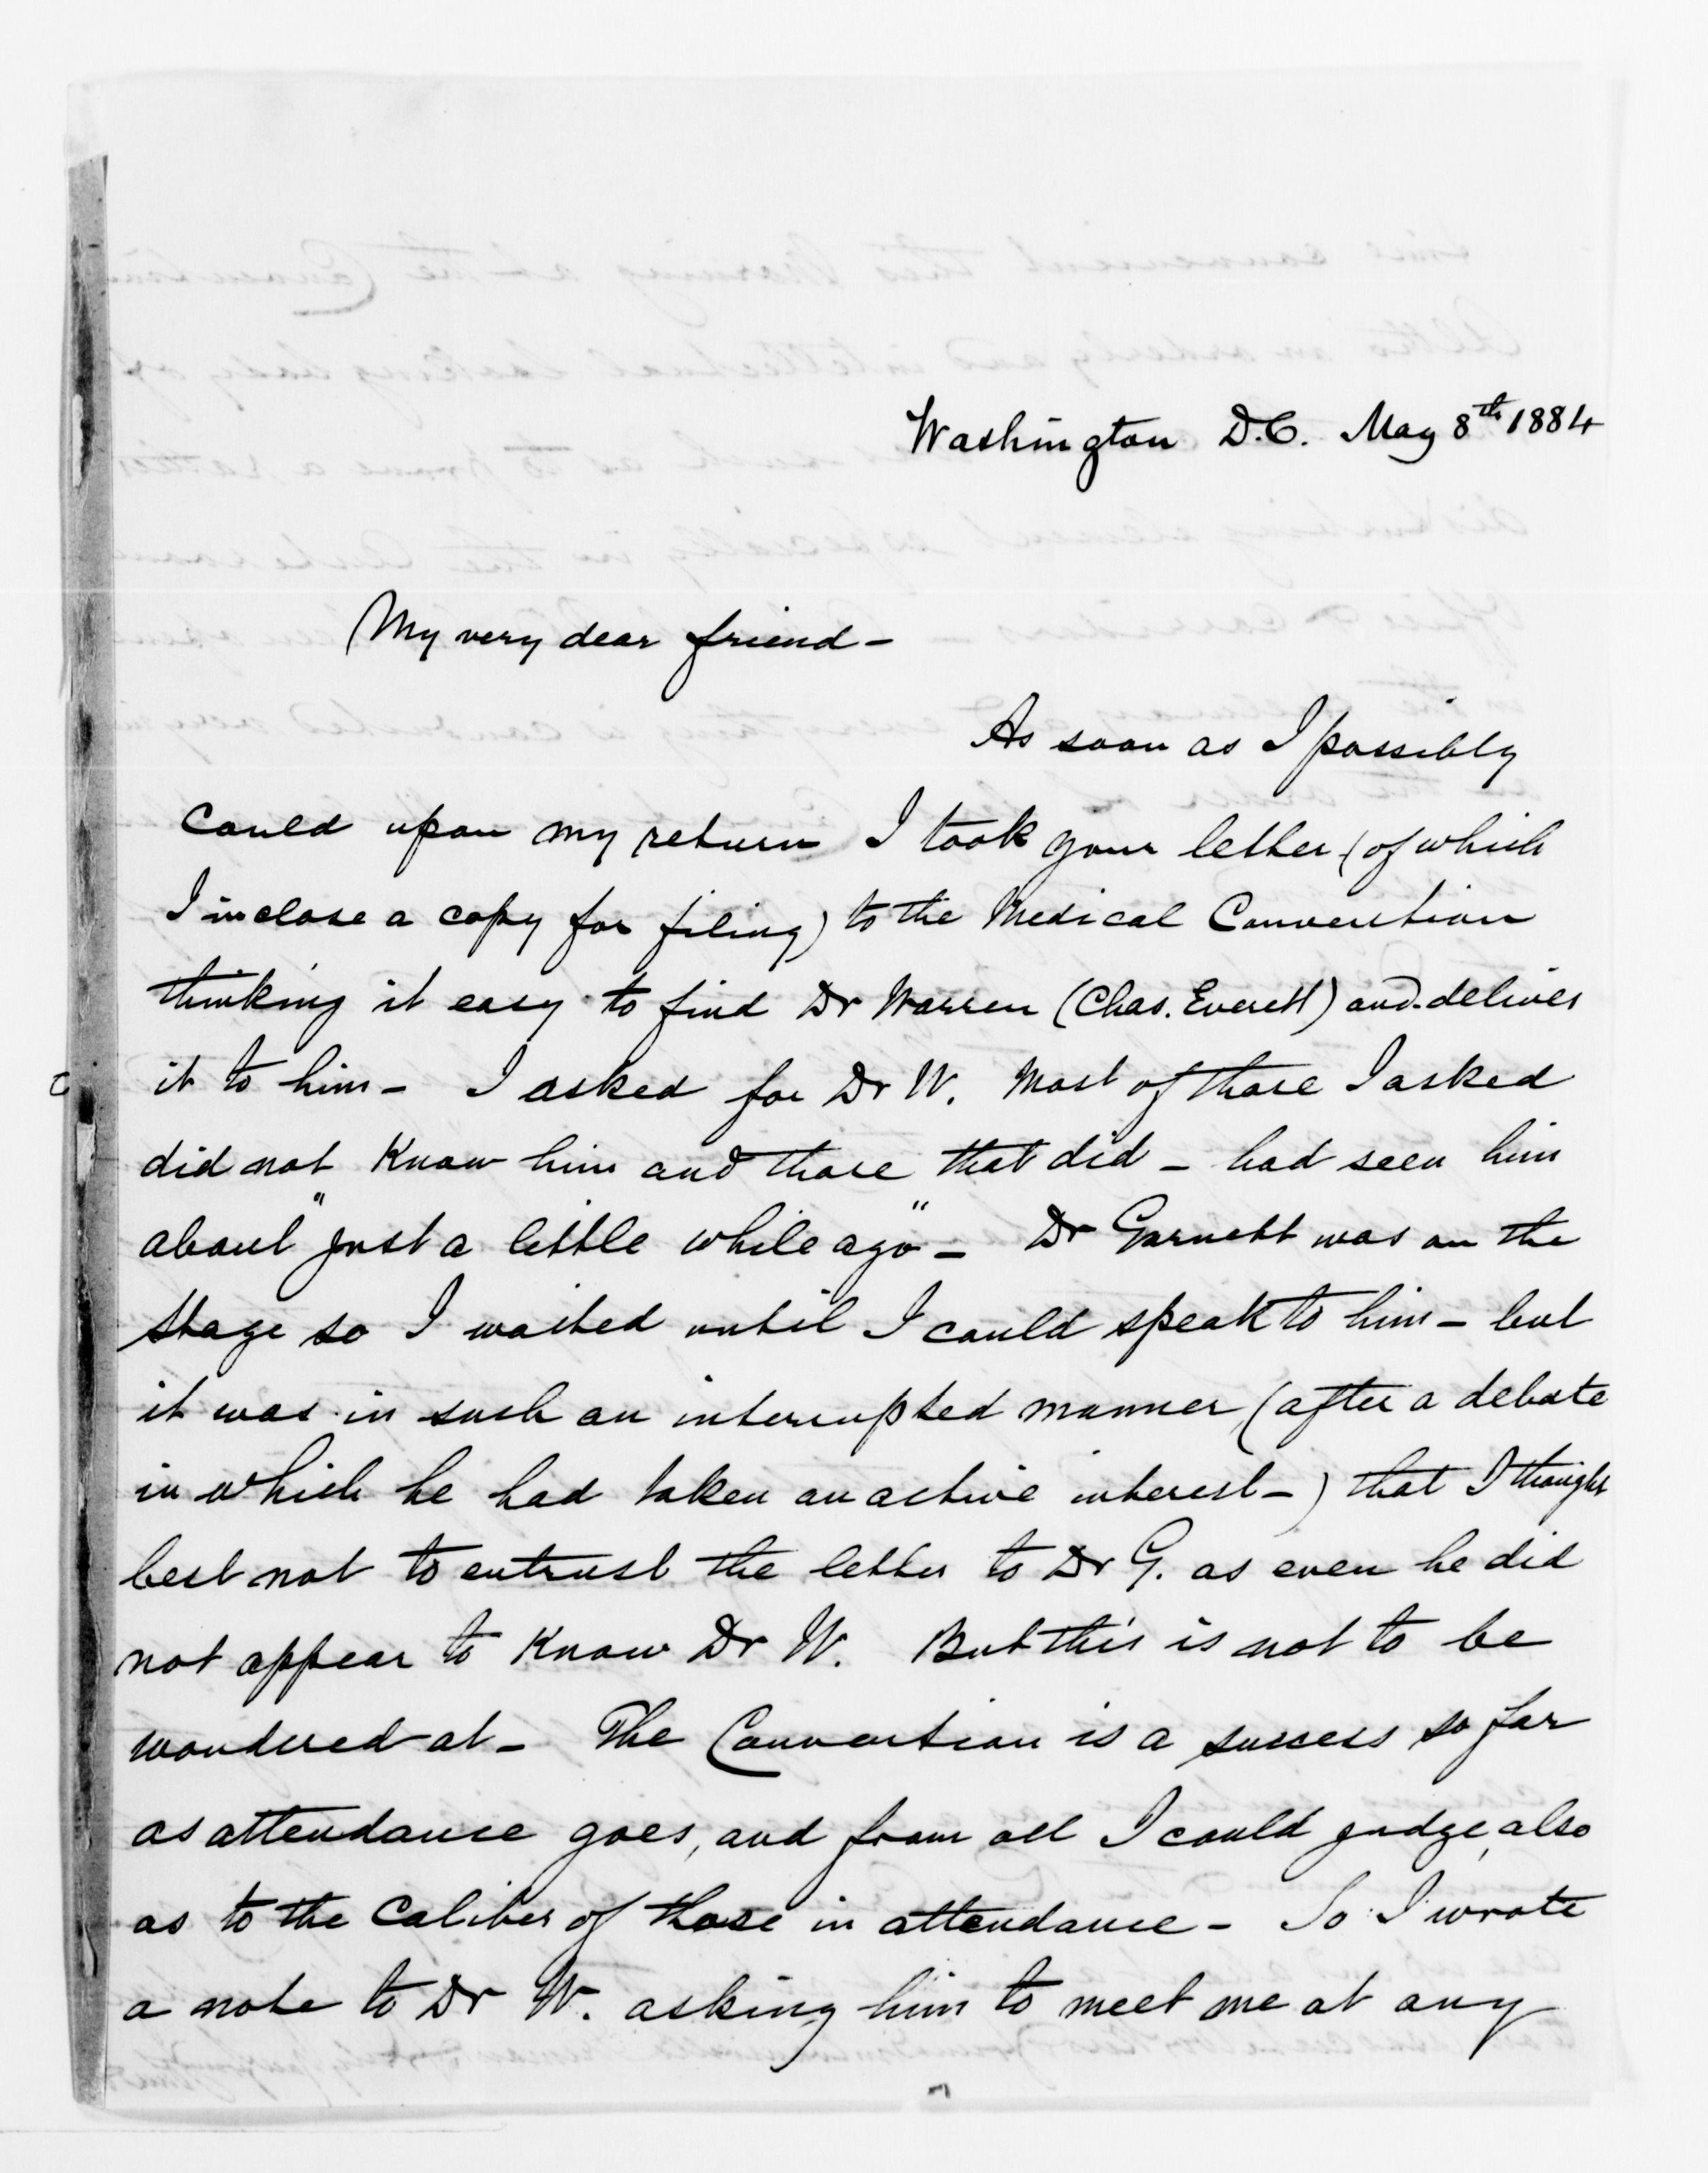 Washington D.C. May 8th 1884
My very dear friend –
As soon as I possibly
could upon my return I took your letter (of which
I inclose a copy for filing) to the Medical Convention
thinking it easy to find Dr Warren (Chas. Everett) and deliver
it to him – I asked for Dr W. Most of those I asked
did not know him and those that did – had seen him
about "just a little while ago" – Dr Garnett was on the
stage so I waited until I could speak to him – but
it was in such an interrupted manner (after a debate
in which he had taken an active interest –) that I thought
best not to entrust the letter to Dr G. as even he did
not appear to know Dr W. But this is not to be
wondered at – The Convention is a success so far
as attendance goes, and from all I could judge, also
as to the caliber of those in attendance – So I wrote
a note to Dr W. asking him to meet me at any